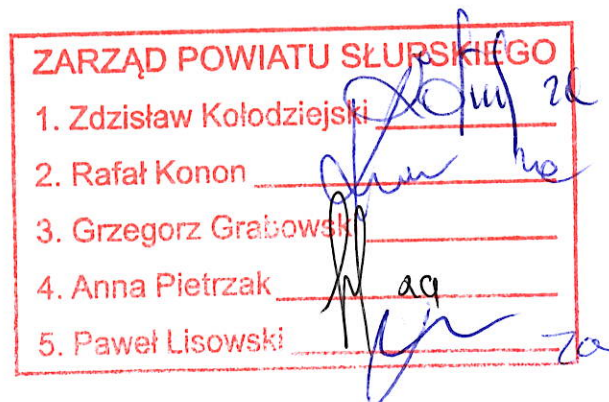 ZARZĄD POWIATU SŁUPSKIEGO
1. Zdzisław Kołodziejski za
2. Rafał Konon za
3. Grzegorz Grabowski
4. Anna Pietrzak
5. Paweł Lisowski za